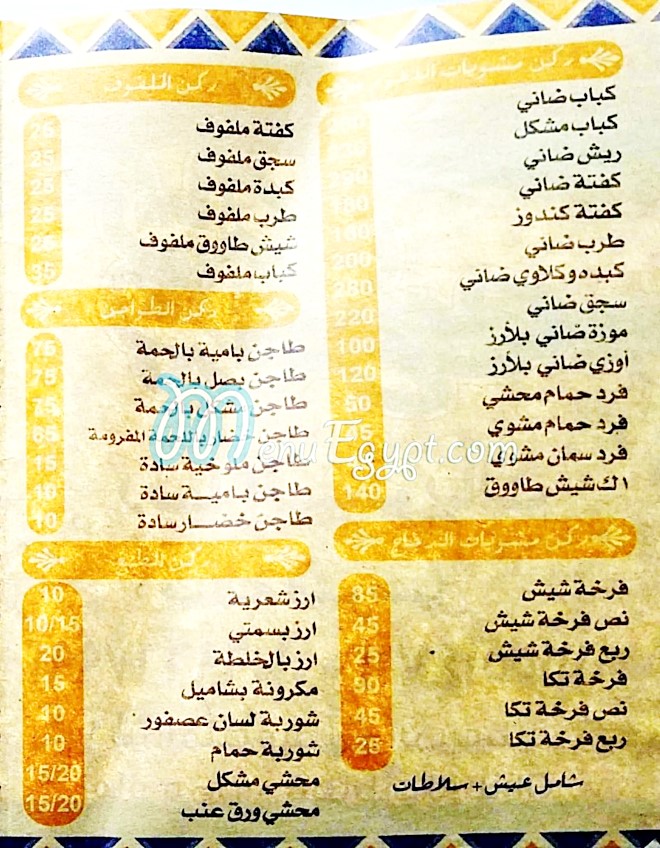 ركن مشويات
كباب ضاني
كباب مشكل
ريش ضاني
كفتة ضاني
كفتة كندوز
طرب ضاني 200
كبده وكلاوي ضاني 280
سجق ضاني 220
موزة ضاني بلأرز 100
أوزي ضاني بلأرز 120
فرد حمام محشي
فرد حمام مشوي
فرد سمان مشوي
1ك شيش طاووق 140
ركن مشويات الفراخ
فرخة شيش 85
نص فرخة شيش 45
ربع فرخة شيش 25
فرخة تكا 90
نص فرخة تكا 45
ربع فرخة تكا 25
شامل عيش + سلاطات
ركن الملفوف
كفتة ملفوف 25
سجق ملفوف 25
كبدة ملفوف 25
طرب ملفوف 25
شيش طاووق ملفوف 25
كباب ملفوف 35
ركن الطواجن
طاجن بامية بالحمة 75
طاجن بصل بالحمة 75
طاجن مشكل بالحمة 75
طاجن خضار باللحمة المفرومة 65
طاجن ملوخية سادة 15
طاجن باميــة سادة 10
طاجن خضــار سادة 10
ركن المطبخ
ارز شعرية 10
ارز بسمتي 10/15
ارز بالخلطة 20
مكرونة بشاميل 15
شوربة لسان عصفور 40
شوربة حمام 10
محشي مشكل 15/20
محشي ورق عنب 15/20
MenuEgypt.com